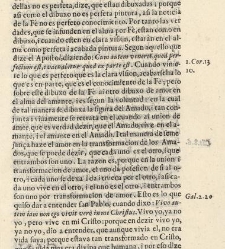 dellas no es perfeta, dize, que estan dibuxadas: y porque
assi como el dibuxo no es perfeta pintura, assi la noticia
de la Fè no es perfeto conocimiento. Por tanto las ver-
dades, que se infunden en el alma por Fè, estan como en
dibuxo, y quando esten en clara vision, estarán en el al-
ma como perfeta i acabada pintura. Segun aquello que
dize el Apostol, diziendo: Cum autem venerit quod per-
fectum est, evacuabitur quod ex parte est. Quando vinie-
re lo que es perfeto, que es la clara vision, acabarase lo
que es en parte, que es el conocimiento de la Fè; pero
sobre este dibuxo de la Fè ai otro dibuxo de amor en
el alma del amante, i es segun la voluntad: en la qual
de tal manera se dibuxa la figura del Amado, i tan con-
junta i vivamente se retrata en él, quando ai union de
amor, que es verdad dezir, que el Amado vive en el
amante, i el amante en el Amado. I tal manera
de semejança haze el amor en la transformacion de los
Amados, que se puede dezir, que cada uno es el otro, i que
entrambos son uno. La razon es, porque en la union i
transformacion de amor, el uno dà possession de si al
otro, i cada uno se dexa, i trueca por el otro: i assi ca-
da uno vive en el otro, i el uno es el otro, i entrambos
son uno por transformacion de amor. Esto es lo que
quiso dar a entender San Pablo, quando dixo: Vivo au-
tem iam non ego, vivit vero in me Christus. Vivo yo, ya no
yo; pero vive en mi Cristo: porque en dezir vivo yo,
ya no yo, dio a entender, que aunque vivia él, no era
vida suya, porque estava transformado en Cristo,
1. Cor. 13.
10.
Gal. 2. 20